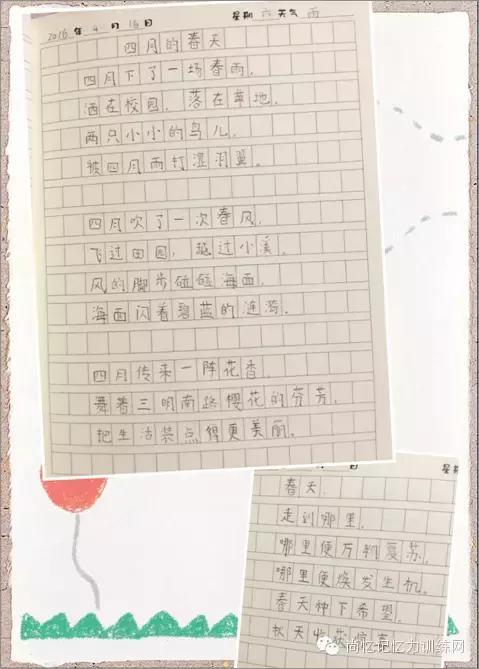 2016年4月16日 星期六天气雨
四月的春天
四月下了一场春雨,
洒在校园,落在草地。
两只小小的鸟儿,
被四月雨打湿羽翼。
四月吹了一次春风,
飞过田园,越过小溪。
风的脚步磕磕海面,
海面闪着碧蓝的涟漪。
四月传来一阵花香,
舞着三明南路樱花的芬芳,
把生活装点得更美丽。
日 星期
春天,
走到哪里,
哪里便万物复苏,
哪里便焕发生机。
春天种下希望,
秋天收获
尚忆记忆力训练网